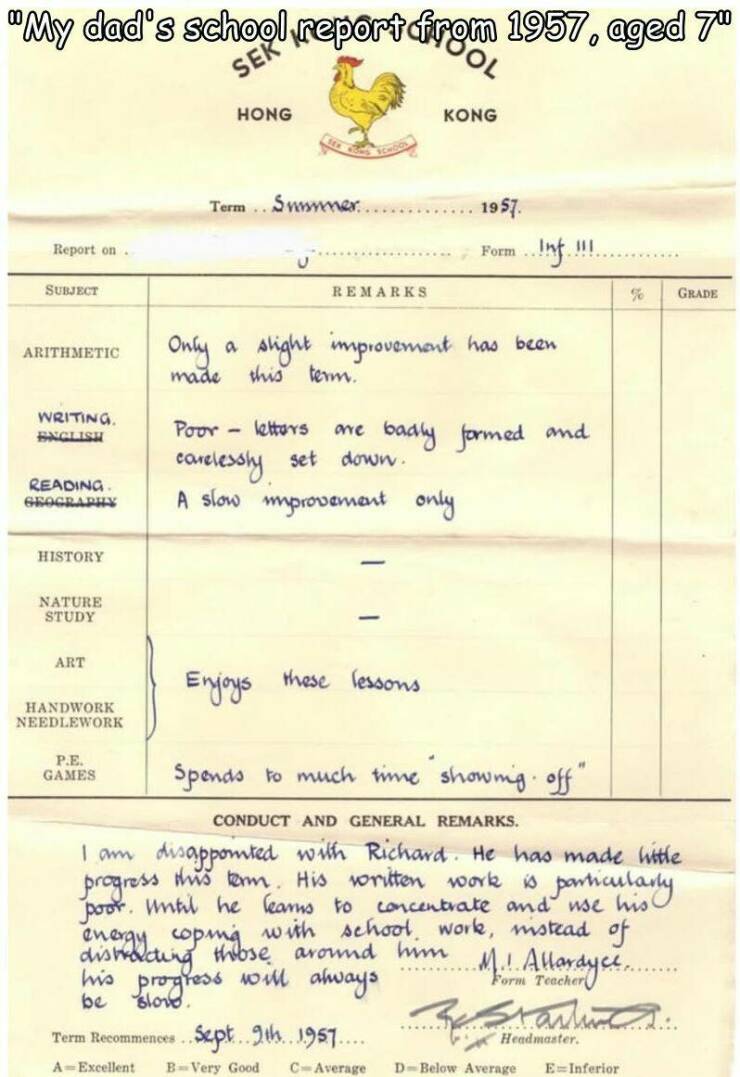 "My dad's school report from 1957, aged 7"
SEK KONG SCHOOL
HONG KONG
SEK KONG SCHOOL
Term .. Summer. 1957.
Report on . Form .. Inf III
SUBJECT REMARKS % GRADE
ARITHMETIC Only a slight improvement has been
made this term.
WRITING.
ENGLISH Poor - letters are badly formed and
carelessly set down.
READING.
GEOGRAPHY A slow improvement only
HISTORY —
NATURE
STUDY —
ART
Enjoys these lessons
HANDWORK
NEEDLEWORK
P.E.
GAMES Spends to much time "showing-off"
CONDUCT AND GENERAL REMARKS.
I am disappointed with Richard. He has made little
progress this term. His written work is particularly
poor. Until he learns to concentrate and use his
energy coping with school work, instead of
distracting those around him
his progress will always
be slow.
M.I. Allardyce.
Form Teacher
Headmaster.
Term Recommences .. Sept. 9th. 1957
A=Excellent B=Very Good C=Average D=Below Average E=Inferior